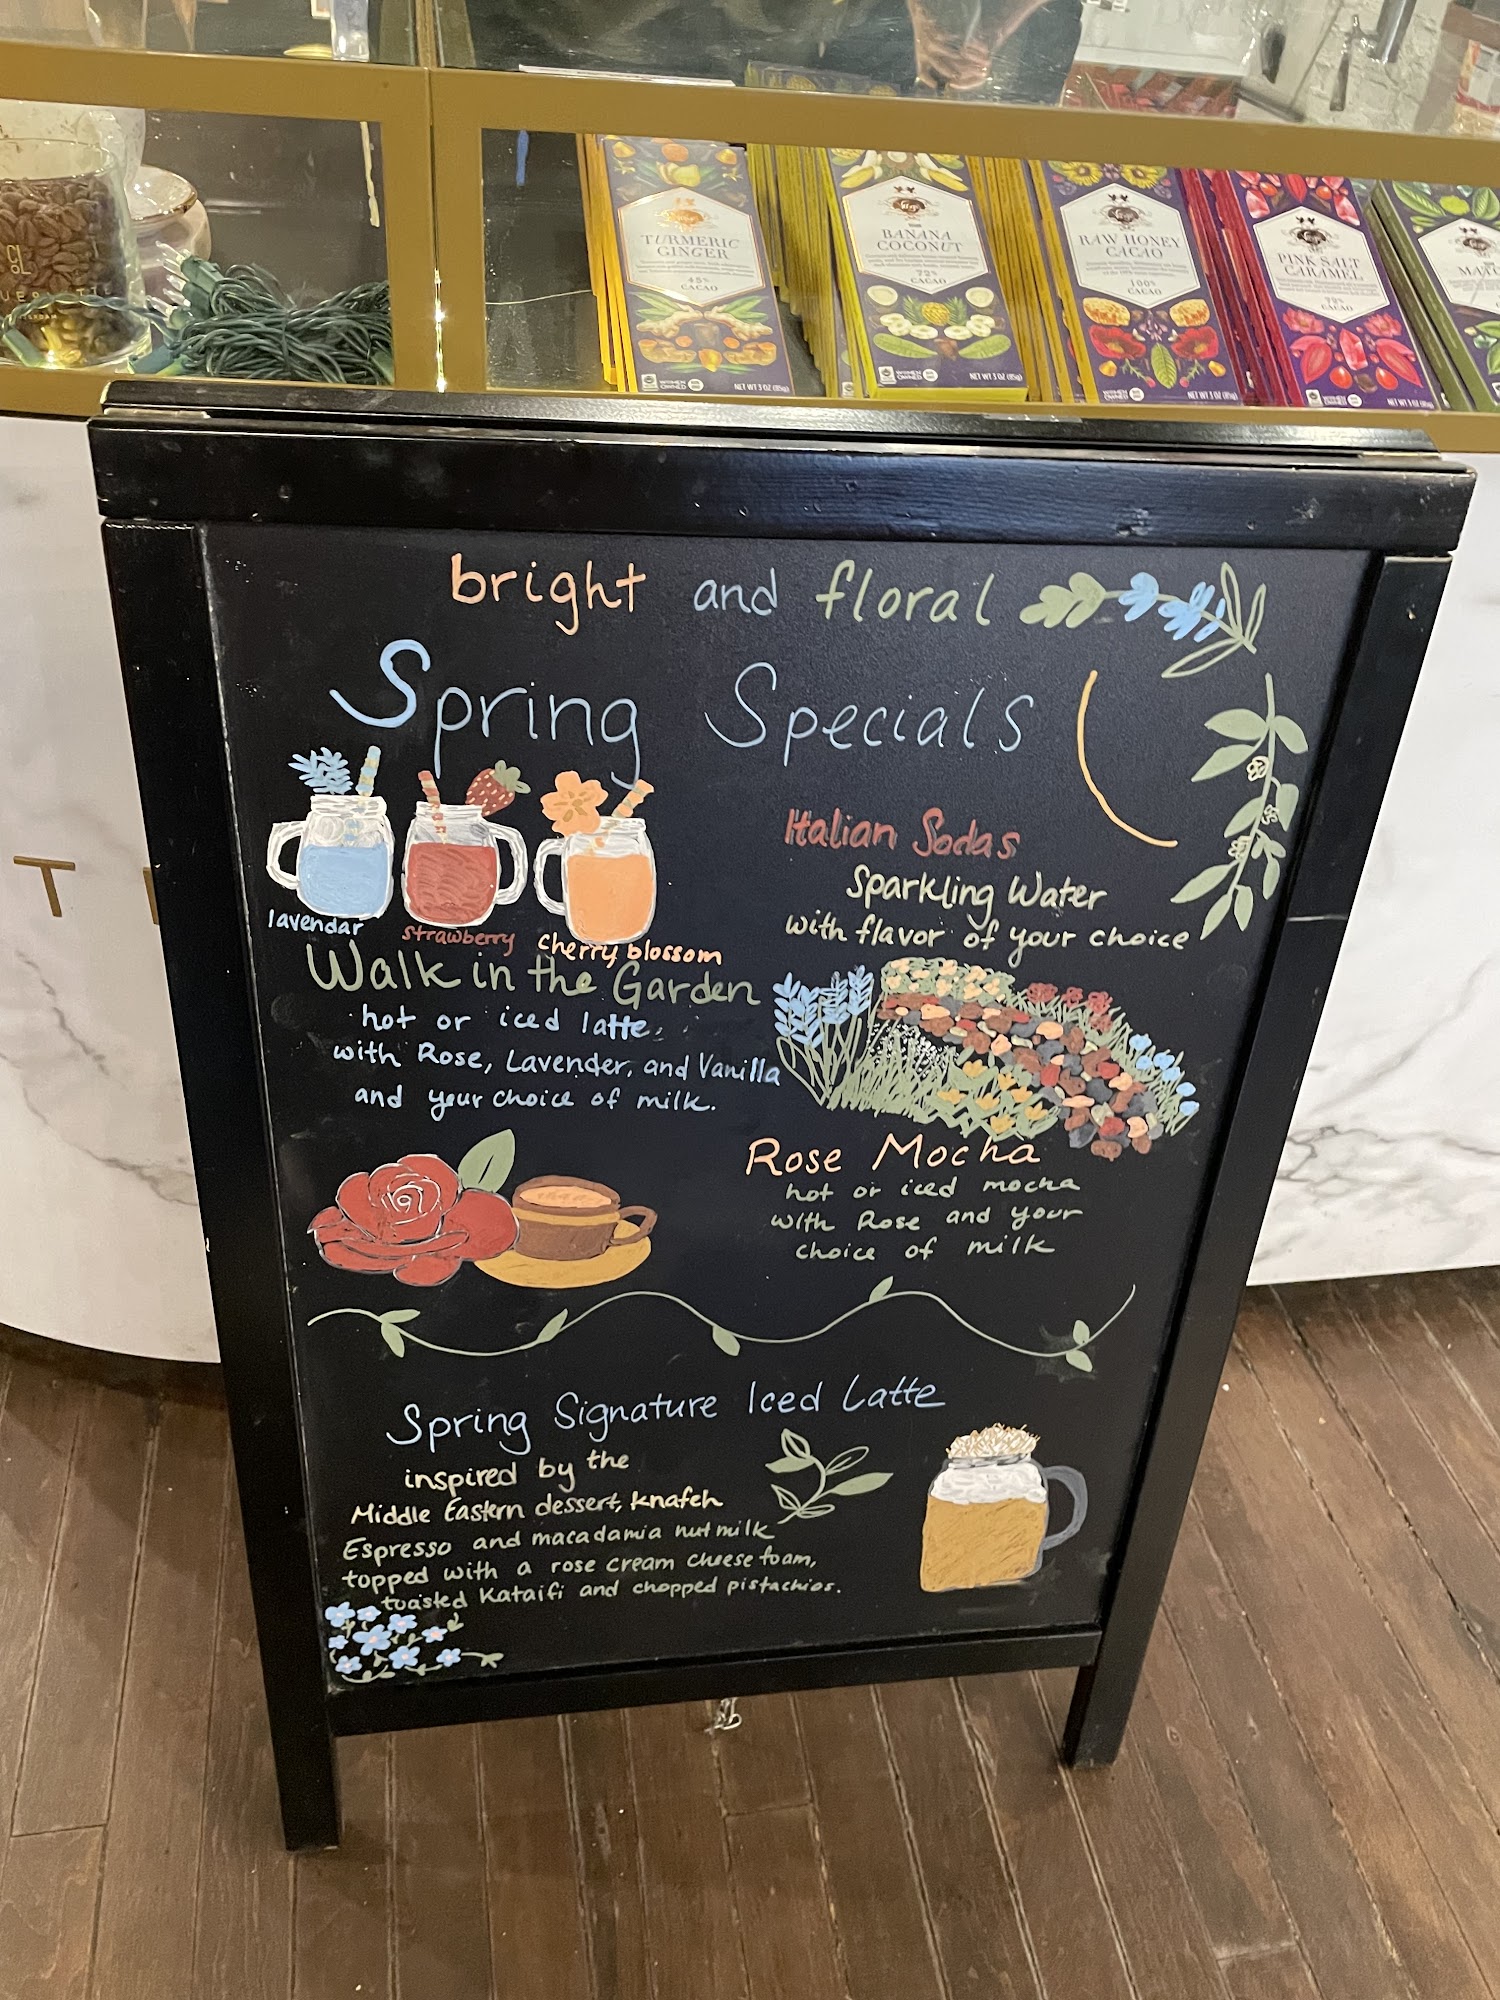 TURMERIC
GINGER
45%
CACAO
NET WT 3 OZ (85g)
BANANA
COCONUT
72%
CACAO
NET WT 3 OZ (85g)
RAW HONEY
CACAO
100%
CACAO
NET WT 3 OZ (85g)
PINK SALT
CARAMEL
CACAO
NET WT 3 OZ (85g)
T
bright and floral
Spring Specials
lavendar
strawberry
cherry blossom
Italian Sodas
Sparkling Water
with flavor of your choice
Walk in the Garden
hot or iced latte
with Rose, Lavender, and Vanilla
and your choice of milk.
Rose Mocha
hot or iced mocha
with Rose and your
choice of milk
Spring Signature Iced Latte
inspired by the
Middle Eastern dessert, knafeh
Espresso and macadamia nut milk
topped with a rose cream cheese foam,
toasted Kataifi and chopped pistachios.